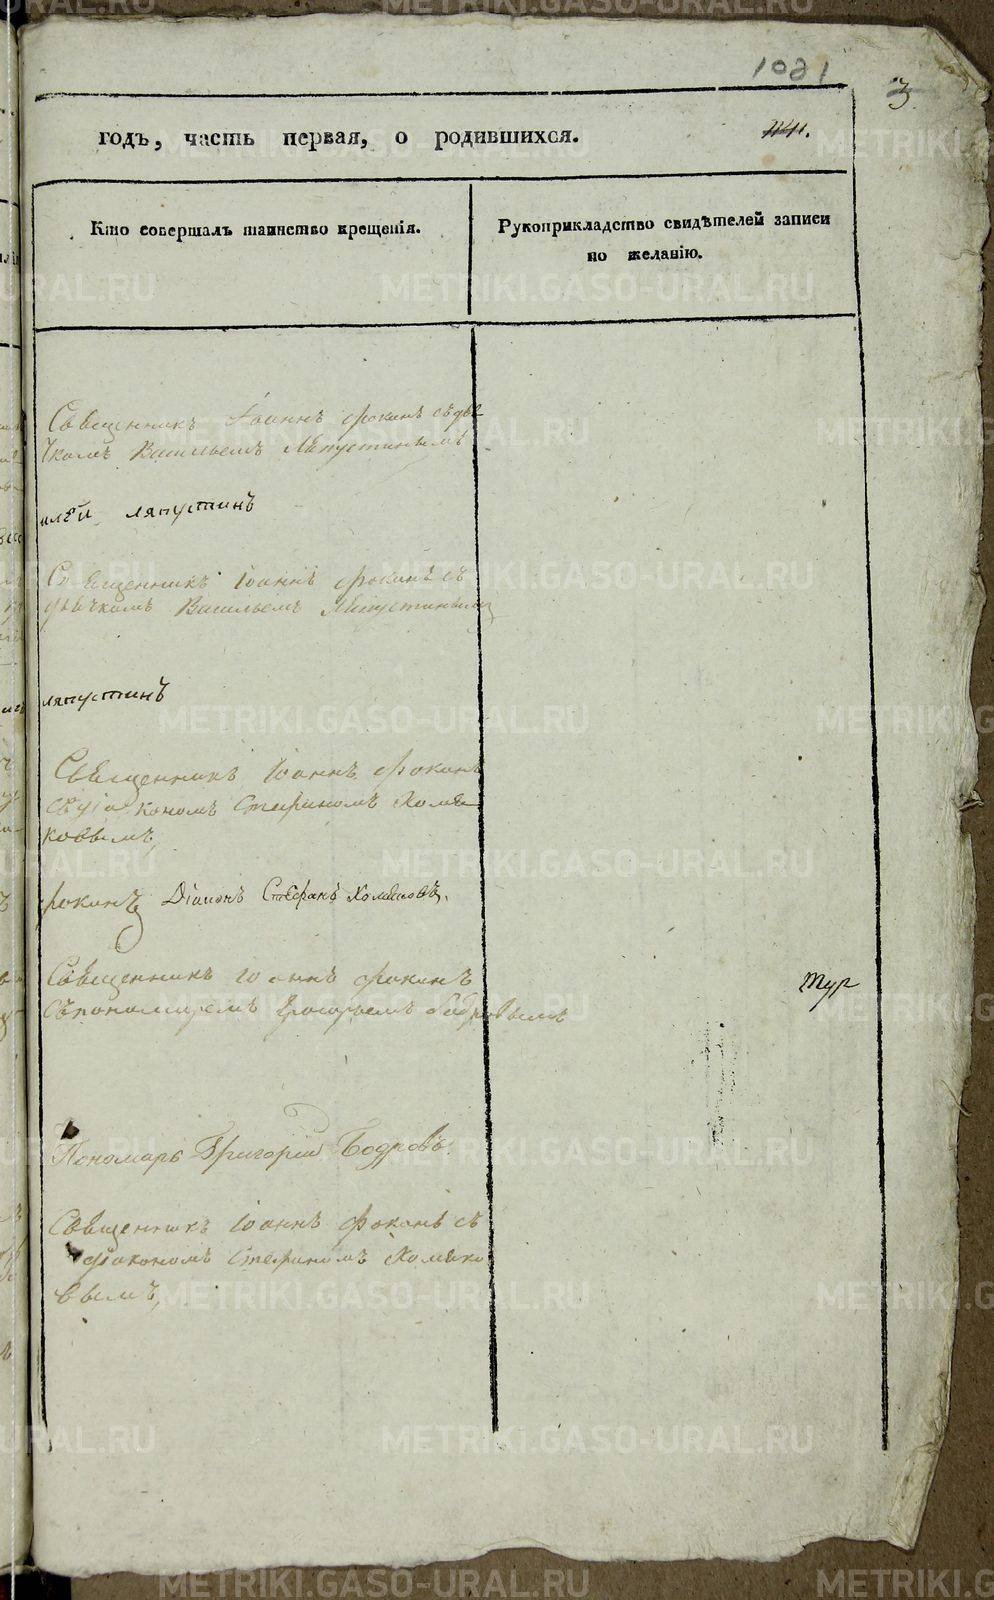 1081
3
годъ, часть первая, о родившихся.
Кто совершалъ таинство крещенія.
Рукоприкладство свидѣтелей записи
по желанію.
Священникъ Іоаннъ Фокинъ съ дья
чкомъ Васильемъ Ляпустинымъ
Ляпустинъ
Священникъ Іоаннъ Фокинъ съ
дьячкомъ Васильемъ Ляпустинымъ
Ляпустинъ
Священникъ Іоаннъ Фокинъ
съ діакономъ Стефаномъ Хомяковымъ
Фокинъ Діаконъ Стефанъ Хомяковъ.
Священникъ Іоаннъ Фокинъ
съ пономаремъ Григорьемъ Бодровымъ
Тур
Пономарь Григорій Бодровъ.
Священникъ Іоаннъ Фокинъ съ
діакономъ Стефаномъ Хомяко
вымъ,
METRIKI.GASO-URAL.RU